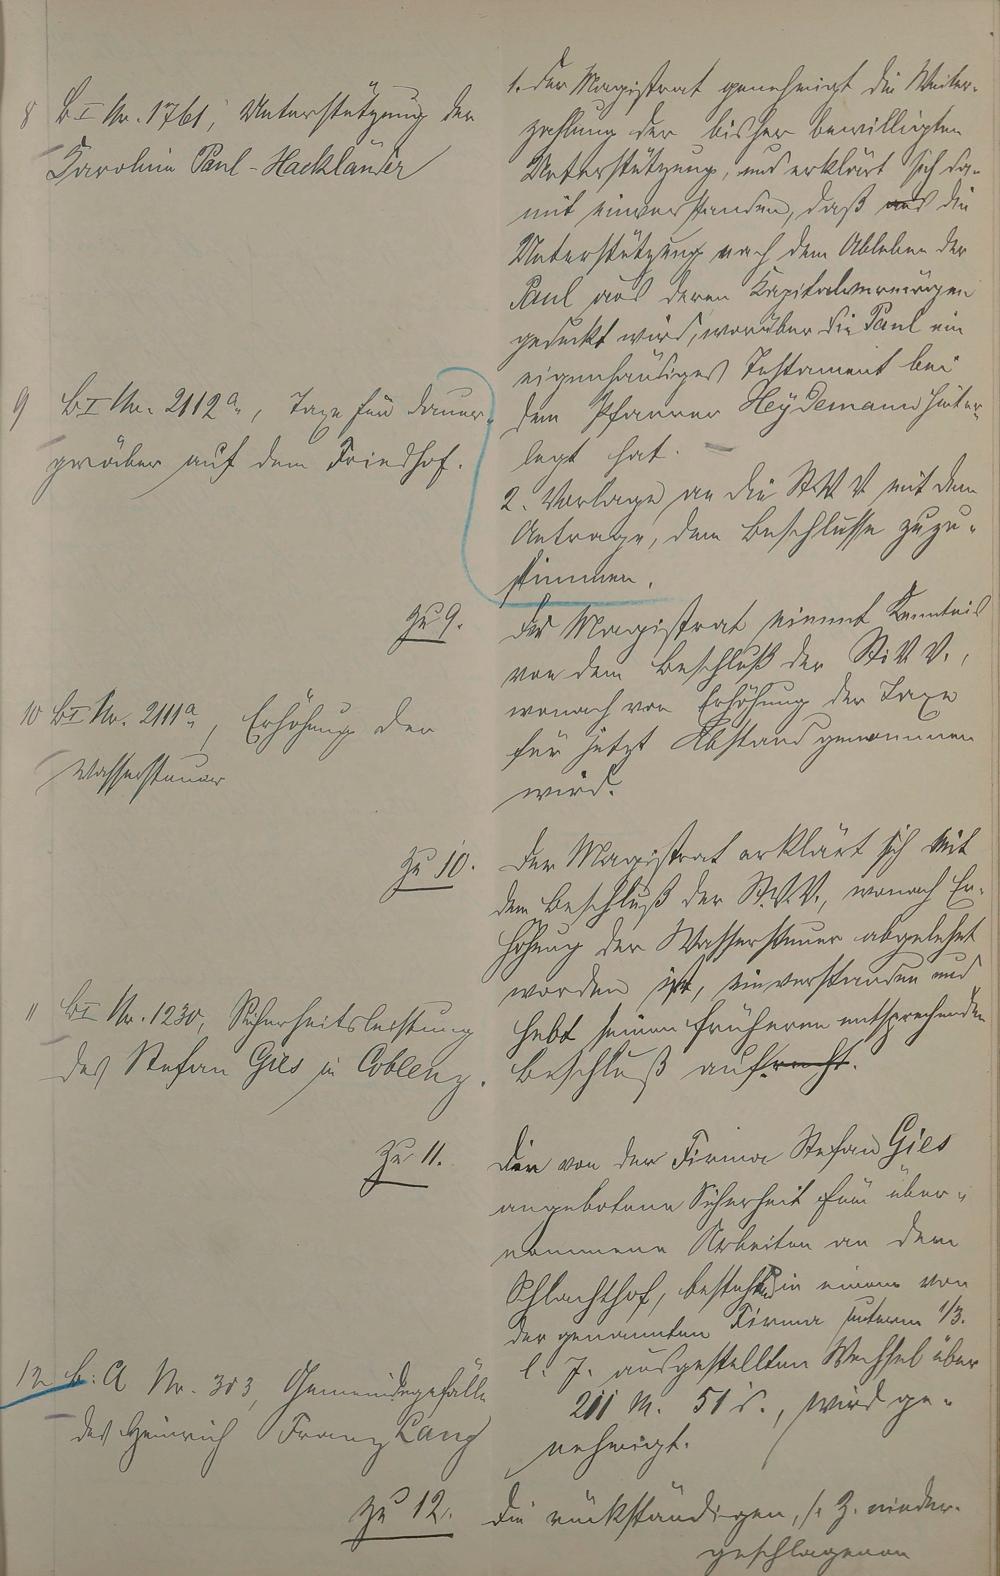 8 B I Nr. 1761, Unterstützung der
Karoline Paul-Hackländer
1. Der Magistrat genehmigt die Weiter-
zahlung der bisher bewilligten
Unterstützung, und erklärt sich da-
mit einverstanden, daß aus die
Unterstützung nach dem Ableben der
Paul aus deren Kapitalvermögen
gedeckt wird, worüber die Paul ein
eigenhändiges Testament bei
dem Pfarrer Heydemann hinter-
legt hat.
2. Vorlage an die St.V.V. mit dem
Antrage, dem Beschlusse zuzu-
stimmen.
9 B I Nr. 2112a, Taxe für Dauer-
gräber auf dem Friedhof.
Zu 9.
Der Magistrat nimmt Kenntnis
von dem Beschluß der St.V.V.,
wonach von Erhöhung der Taxe
für jetzt Abstand genommen
wird.
10 B I Nr. 2111a, Erhöhung der
Wassersteuer
Zu 10.
Der Magistrat erklärt sich mit
dem Beschluß der St.V.V., wonach Er-
höhung der Wassersteuer abgelehnt
worden ist, einverstanden und
hebt seinen früheren entsprechenden
Beschluß aufrecht.
11 B I Nr. 1230, Sicherheitsleistung
des Stefan Gies in Coblenz.
Zu 11.
Die von der Firma Stefan Gies
angebotene Sicherheit für über-
nommene Arbeiten an dem
Schlachthof, bestehend in einem von
der genannten Firma unterm 1/3.
l. J. ausgestellten Wechsel über
211 M. 51 d., wird ge-
nehmigt.
12 B. A Nr. 303, Gemeindegefälle
des Heinrich Franz Lang
Zu 12.
Die rückständigen, s. Z. nieder-
geschlagenen